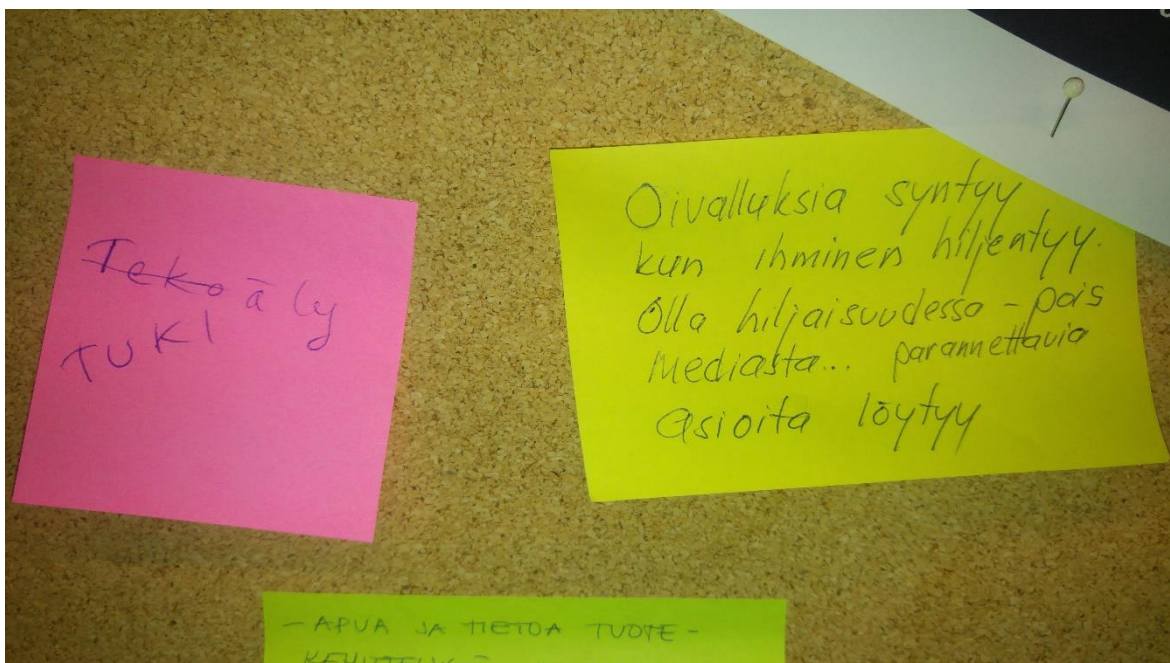 Tekoäly
TUKI
Oivalluksia syntyy
kun ihminen hiljentyy.
Olla hiljaisuudessa - pois
mediasta... parannettavia
asioita löytyy
- APUA JA TIETOA TUOTE-